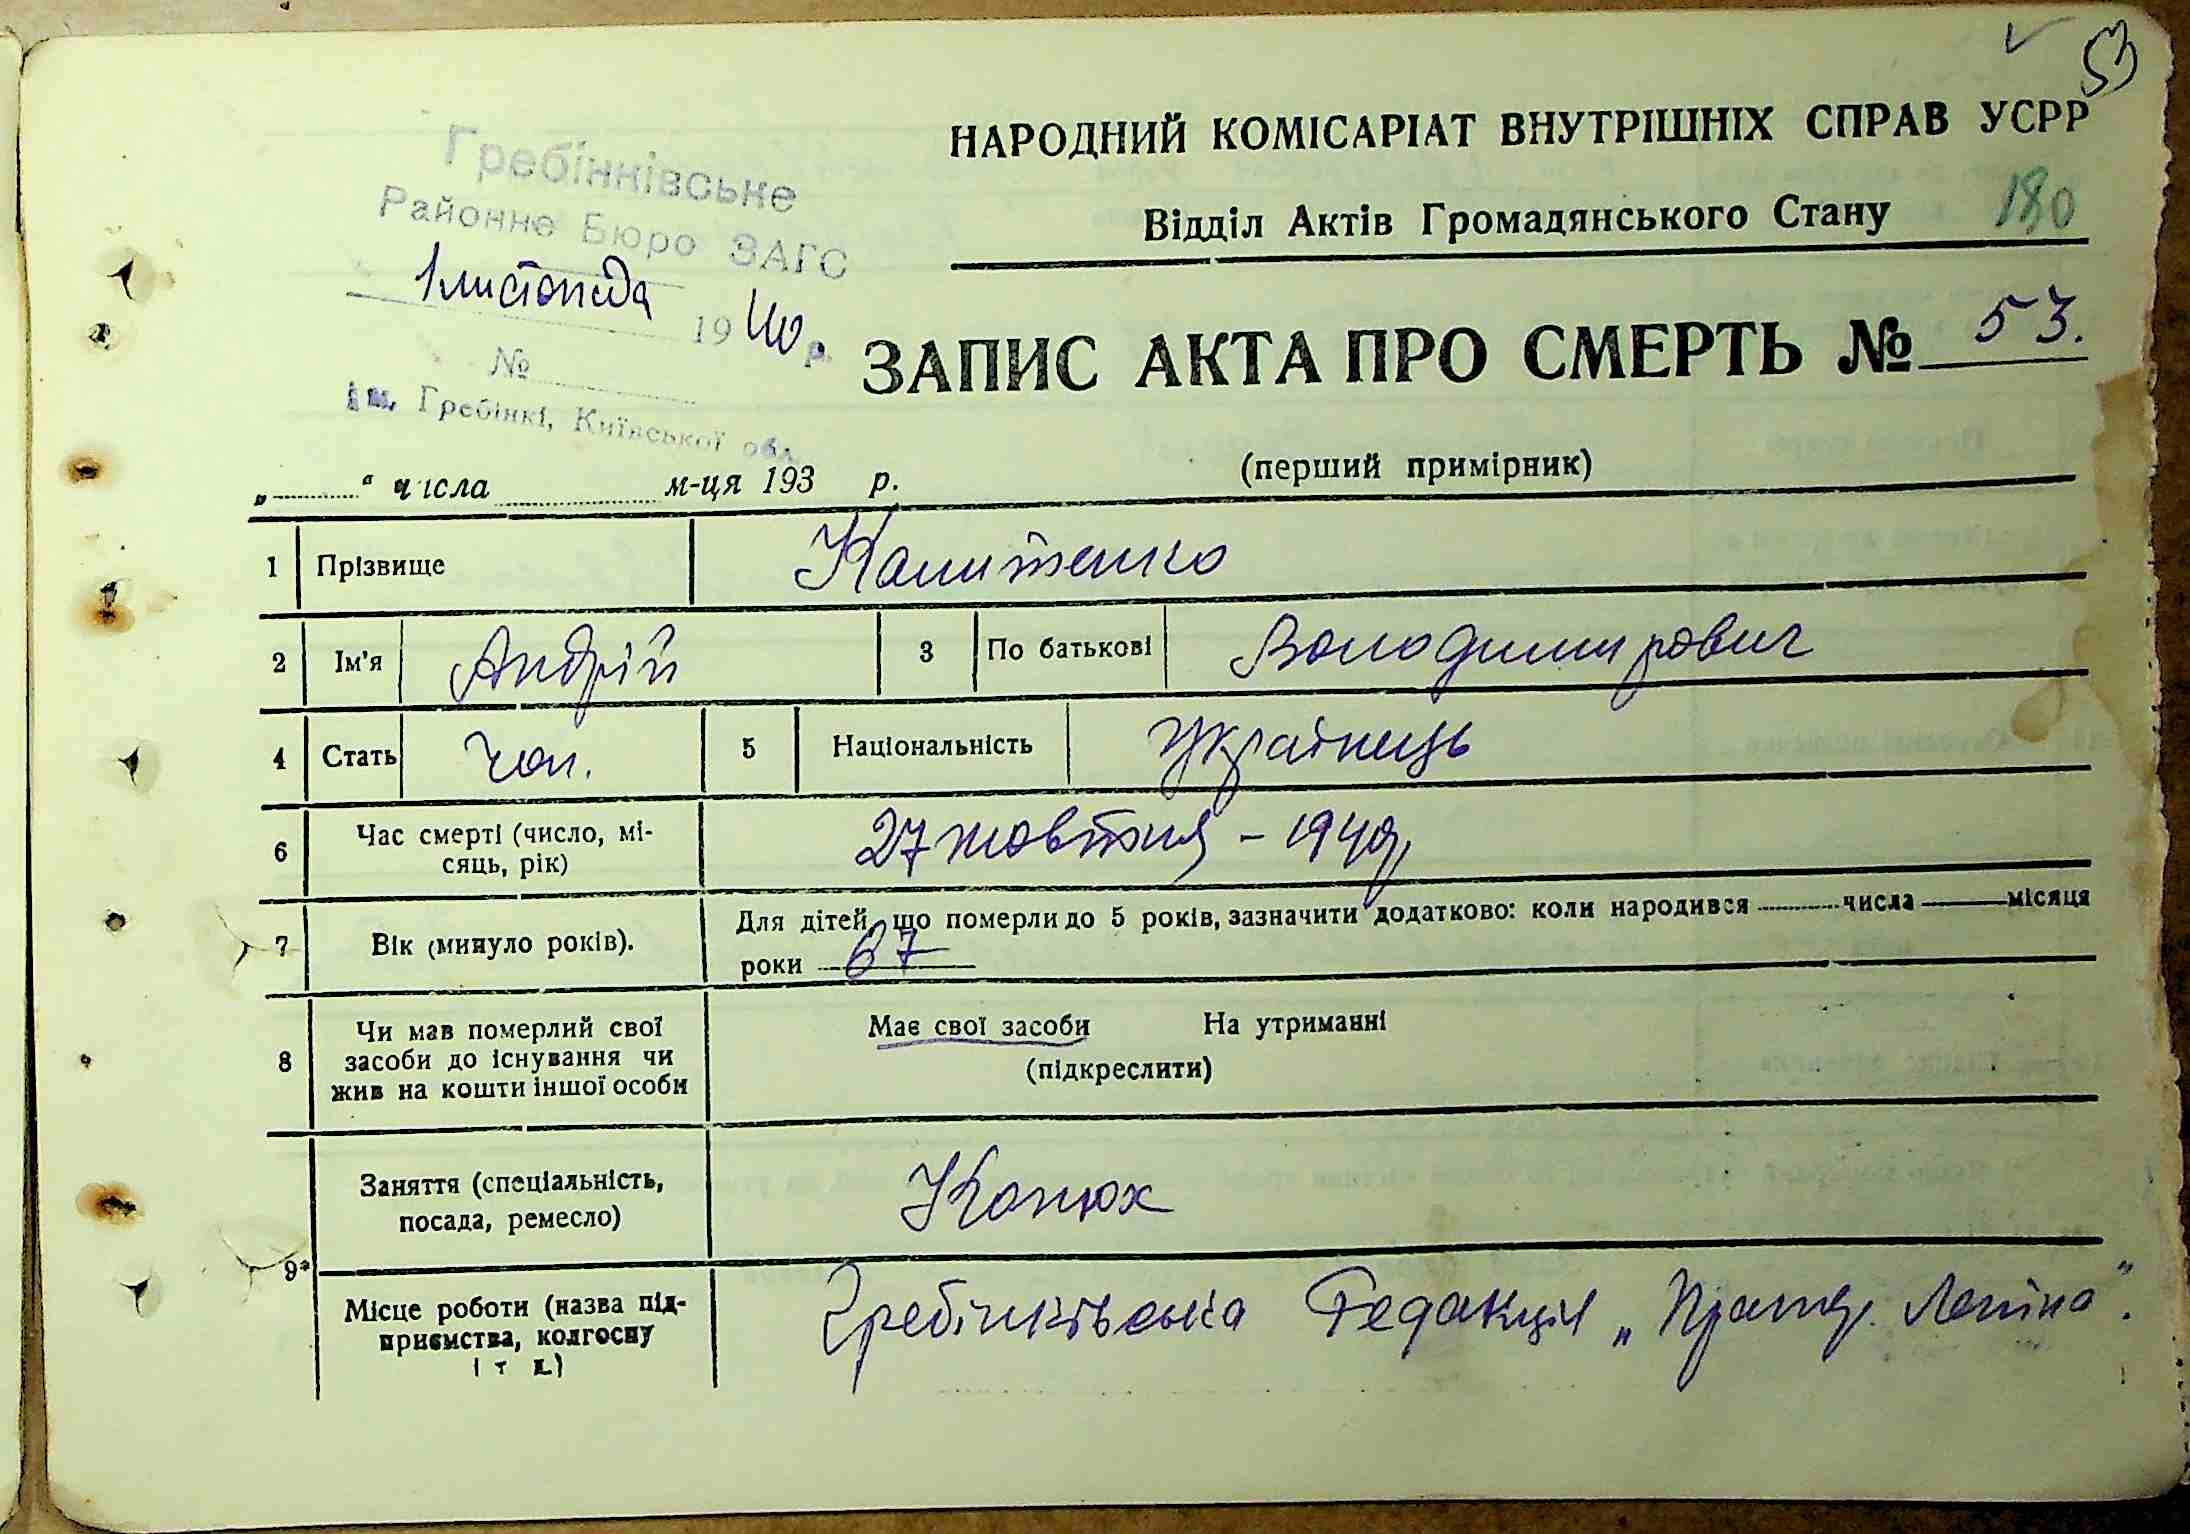 53
НАРОДНИЙ КОМІСАРІАТ ВНУТРІШНІХ СПРАВ УСРР
Відділ Актів Громадянського Стану 180
Гребіннівське
Районне Бюро ЗАГС
1 листопада 1940 р.
№
Гребінкі, Київської обл.
ЗАПИС АКТА ПРО СМЕРТЬ № 53.
„ “ числа м-ця 193 р. (перший примірник)
1 Прізвище
2 Ім'я Андрій 3 По батькові Володимирович
4 Стать чол. 5 Національність Українець
6 Час смерті (число, мі-
сяць, рік) 27 жовтня – 1940р.
7 Вік (минуло років). Для дітей, що померли до 5 років, зазначити додатково: коли народився числа місяця
роки 67
8 Чи мав померлий свої
засоби до існування чи
жив на кошти іншої особи
Має свої засоби На утриманні
(підкреслити)
9* Заняття (спеціальність,
посада, ремесло) Конюх
Місце роботи (назва під-
приємства, колгоспу
і т д.) Гребінківська Редакція „ Леніна".